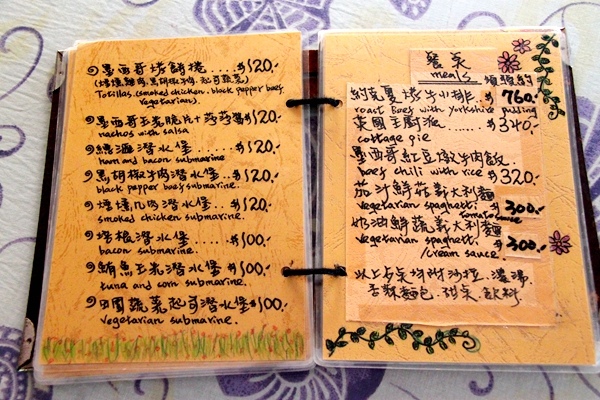 墨西哥烤餅捲....$120.-
(煙燻雞肉.黑胡椒牛肉.起司蔬菜)
Totillas.(smoked chicken. black pepper beef.
vegetarian).
墨西哥玉米脆片+莎莎醬$120.-
nachos with salsa
燻火腿潛水堡....$120.-
ham and bacon submarine.
黑胡椒牛肉潛水堡..$120.-
black pepper beef submarine.
煙燻雞肉潛水堡..$120.-
smoked chicken submarine.
培根潛水堡.....$100.-
bacon submarine.
鮪魚玉米潛水堡 $100.-
tuna and corn submarine.
田園蔬菜起司潛水堡$100.-
vegetarian submarine.
餐菜
meals 須預約
約克夏烤牛小排.$760.-
roast Beef with yorkshire pudding
英國主廚派.......$340.-
cottage pie
墨西哥紅豆燉牛肉飯.
beef chili with rice $320.-
茄汁鮮菇義大利麵
vegetarian spaghetti $300.-
tomato sauce
奶油鮮蔬義大利麵
vegetarian spaghetti $300.-
/cream sauce
以上各菜均附沙拉.濃湯.
香蒜麵包.甜點.飲料